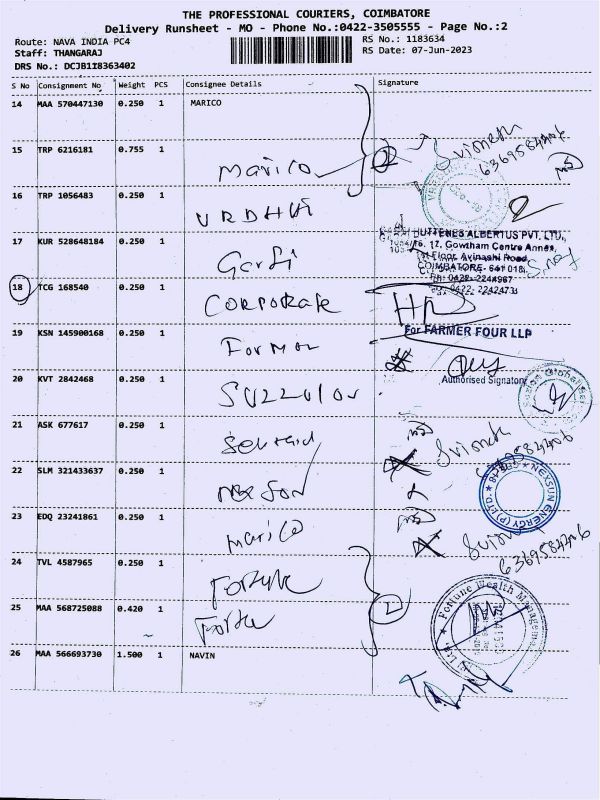 THE PROFESSIONAL COURIERS, COIMBATORE
Delivery Runsheet - MO - Phone No.:0422-3505555 - Page No.:2
Route: NAVA INDIA PC4
Staff: THANGARAJ
DRS No.: DCJB1I8363402
RS No.: 1183634
RS Date: 07-Jun-2023
S No Consignment No Weight PCS Consignee Details Signature
14 MAA 570447130 0.250 1 MARICO
15 TRP 6216181 0.755 1 Marico
6369584406
16 TRP 1056483 0.250 1
17 KUR 528648184 0.250 1
HUTTENES ALBERTUS PVT. LTD.,
12, Gowtham Centre Annex,
Floor, Avinashi Road,
COIMBATORE- 641 018
PH: 0422- 2244967
0422- 2242473
18 TCG 168540 0.250 1 Corporate
For FARMER FOUR LLP
19 KSN 145900168 0.250 1 Farmer
Authorised Signatory
20 KVT 2842468 0.250 1
21 ASK 677617 0.250 1
6369584406
22 SLM 321433637 0.250 1
NEXSUN ENERGY (P) LTD.
23 EDQ 23241861 0.250 1 Marico
6369584406
24 TVL 4587965 0.250 1
25 MAA 568725088 0.420 1
Fortune Wealth Management
26 MAA 566693730 1.500 1 NAVIN